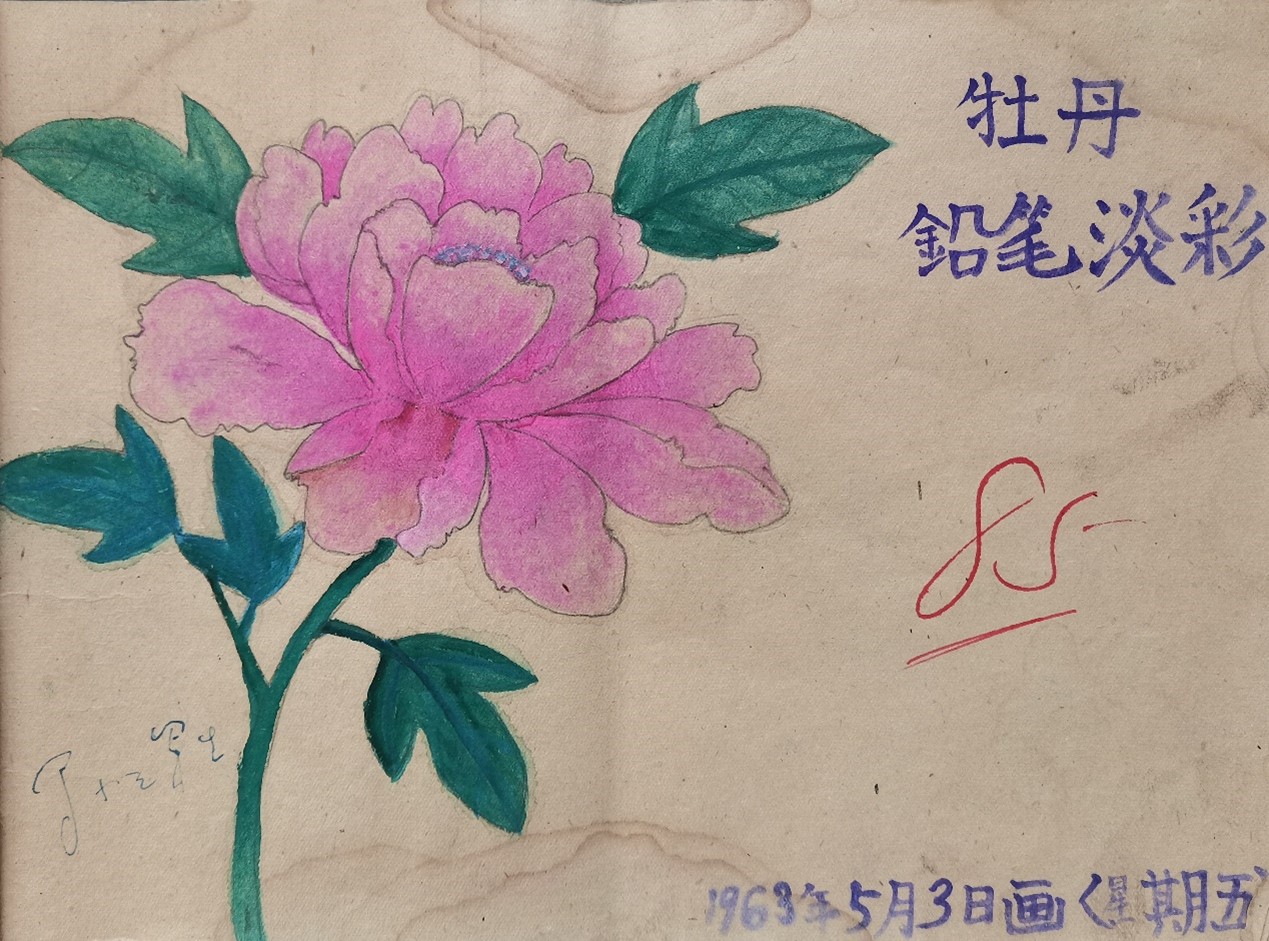 牡丹
鉛笔淡彩
85
1963年5月3日画〈星期五